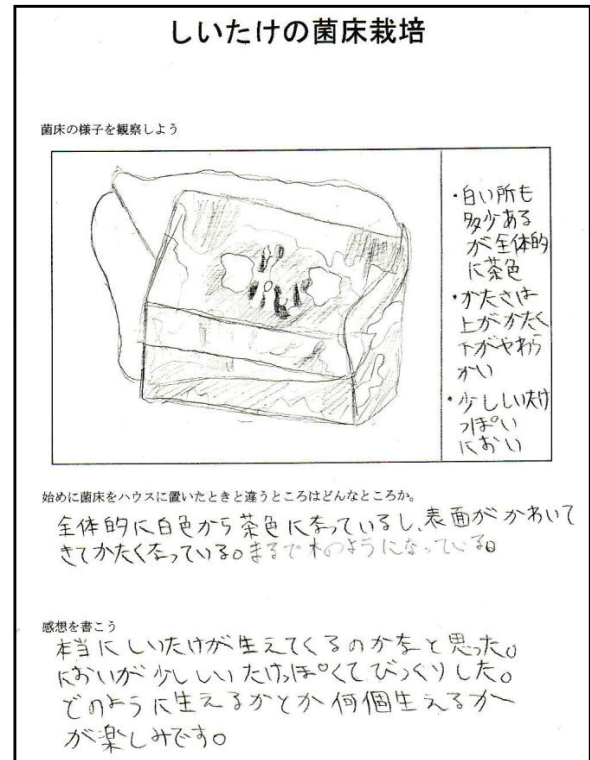 しいたけの菌床栽培
菌床の様子を観察しよう
・白い所も
多少ある
が全体的
に茶色
・かたさは
上がかたく
下がやわら
かい
・少ししいたけ
っぽい
におい
始めに菌床をハウスに置いたときと違うところはどんなところか。
全体的に白色から茶色になっているし、表面がかわいて
きてかたくなっている。まるで木のようになっている。
感想を書こう
本当にしいたけが生えてくるのかなと思った。
においが少ししいたけっぽくてびっくりした。
どのように生えるかとか何個生えるか
が楽しみです。